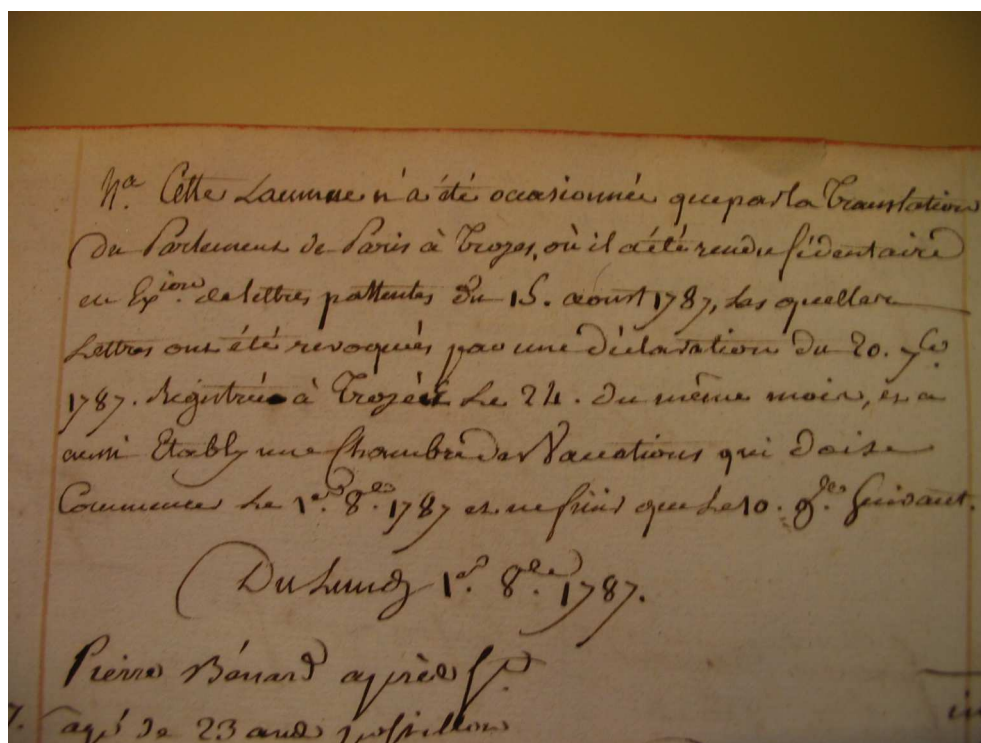 Na. Cette Lacunne n'a été occasionnée que par la Translation
du Parlement de Paris à Troyes, où il a été rendu sédentaire
en Exion. de lettres pattentes du 15. aoust 1787, Les quelles
Lettres ont été revoquées par une déclaration du 20. 7bre
1787. Registrée à Troyes Le 24. du même mois, et a
aussi Etably une Chambre des Vacations qui doit se
Commencer Le 1er. 8bre. 1787 et ne finir que Le 10. 9bre. Suivant.
Du Lundy 1er. 8bre. 1787.
Pierre Bénard après St.
7. agé de 23 ans postillon